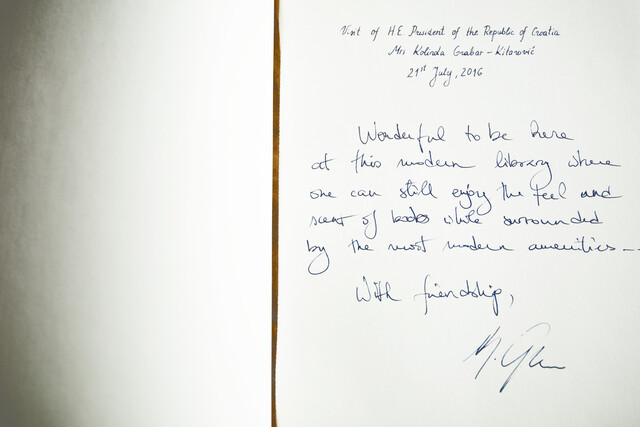 Visit of H.E. President of the Republic of Croatia
Mrs Kolinda Grabar-Kitarović
21st July, 2016
Wonderful to be here
at this modern library where
one can still enjoy the feel and
scent of books while surrounded
by the most modern amenities -
With friendship,